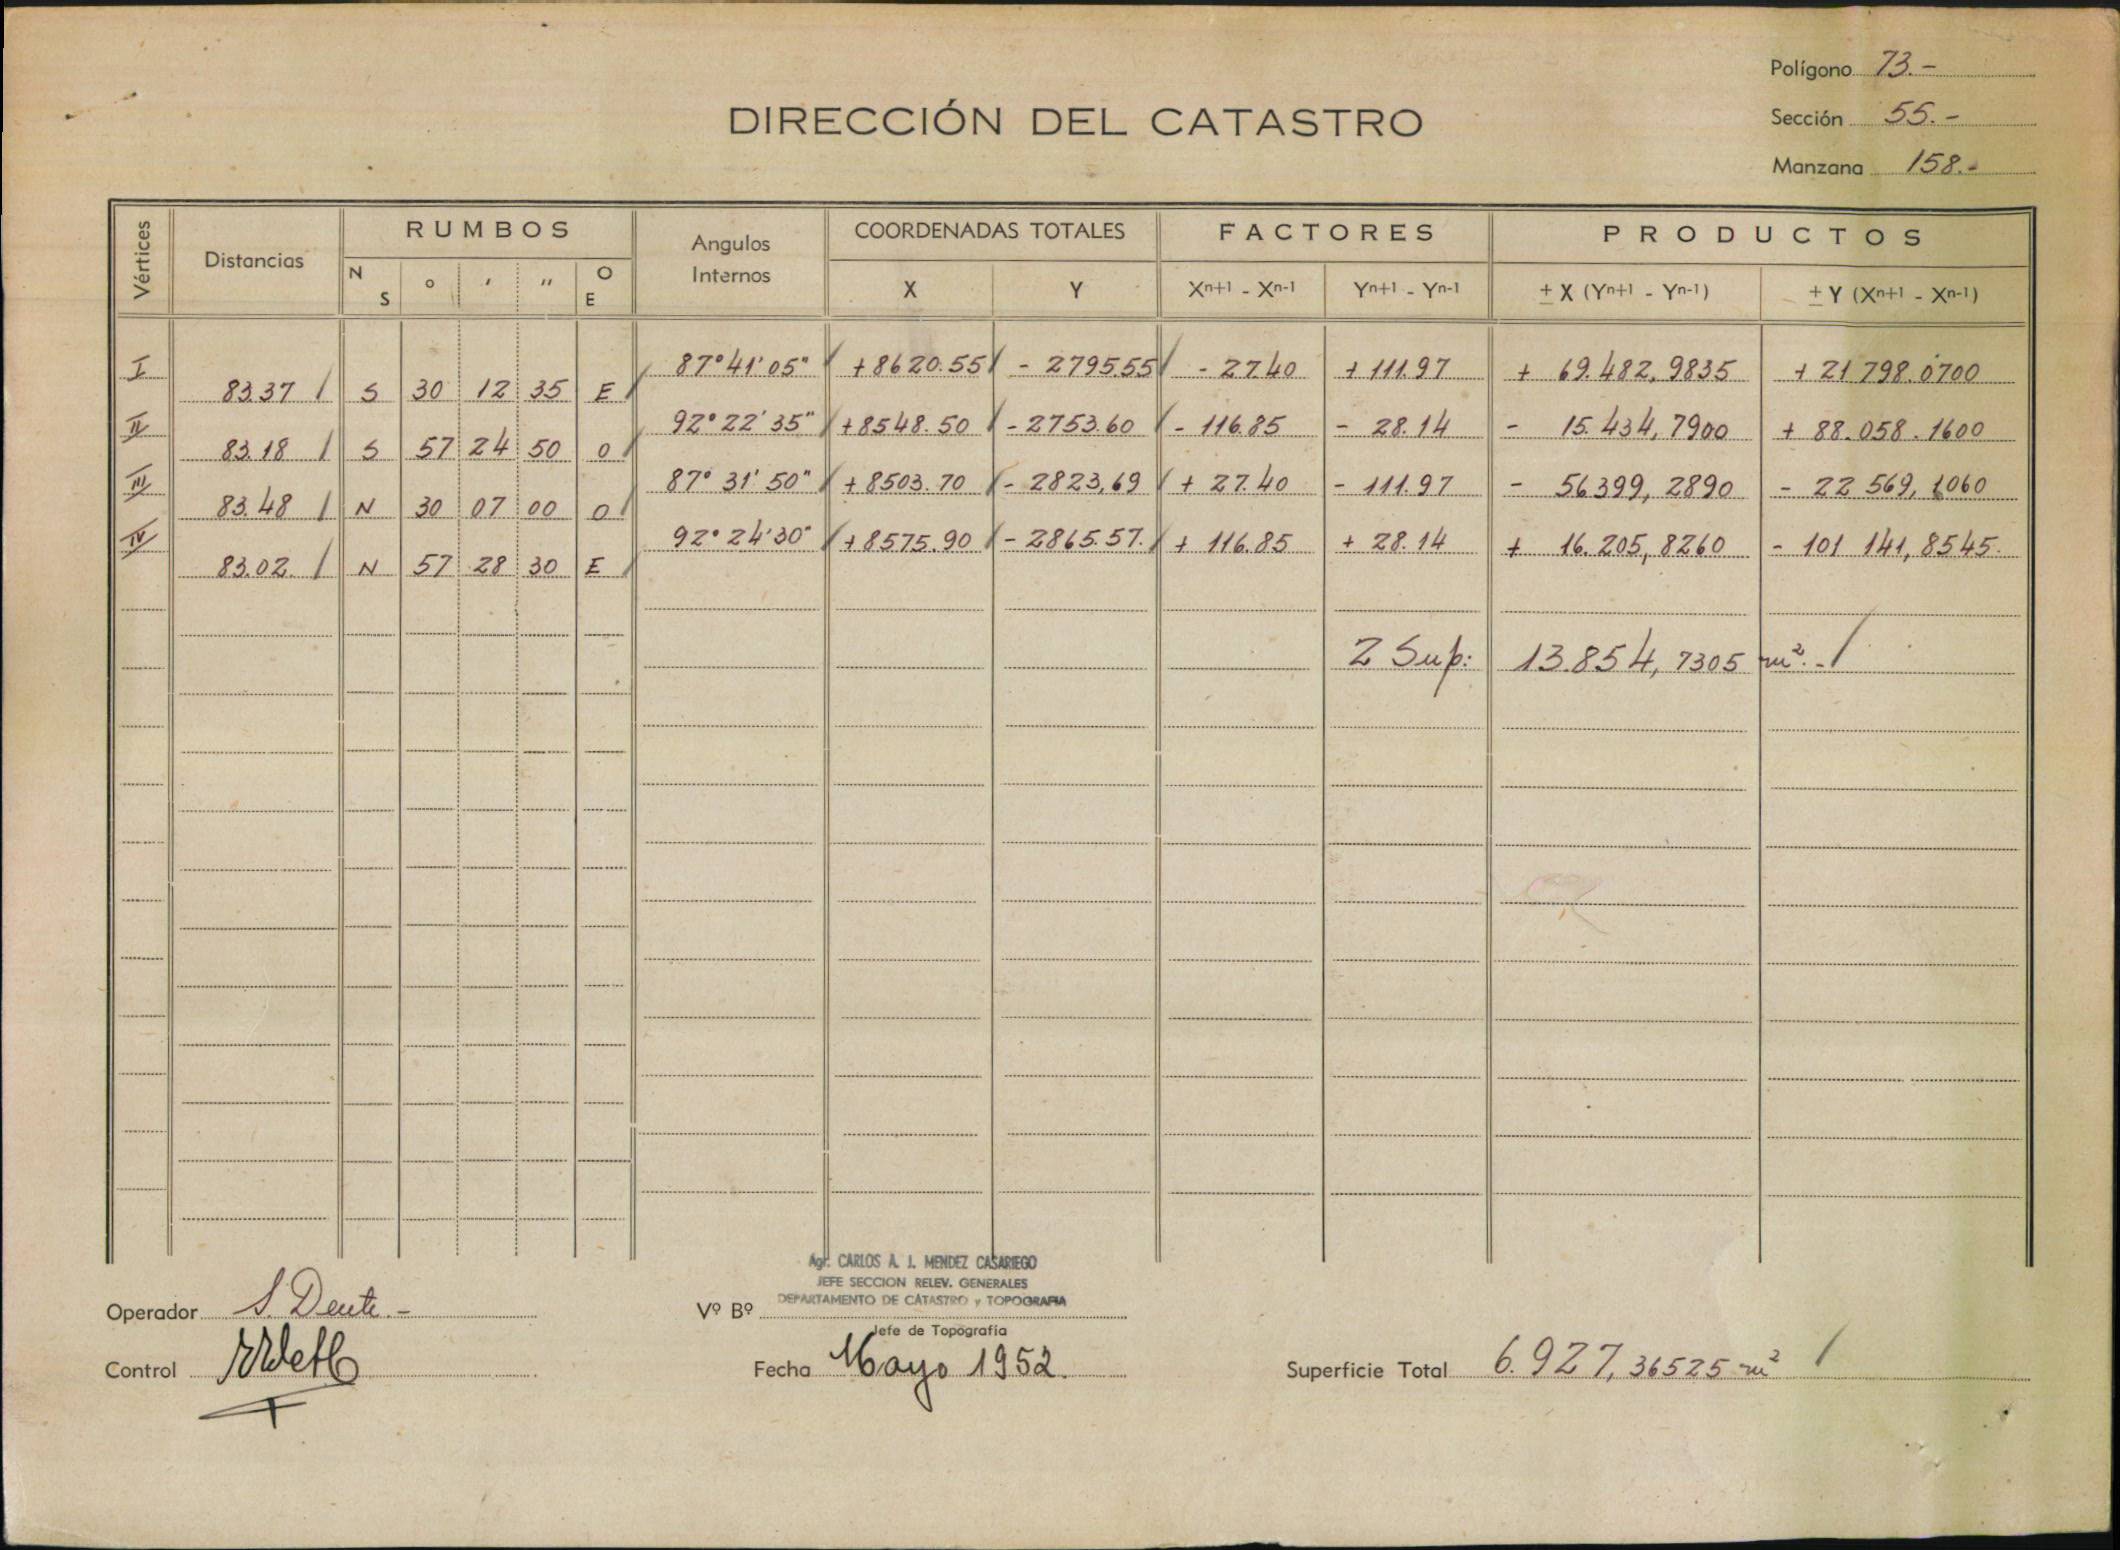 Polígono 73.-
DIRECCIÓN DEL CATASTRO
Sección 55.-
Manzana 158.-
Vértices Distancias RUMBOS Angulos Internos COORDENADAS TOTALES FACTORES PRODUCTOS
N S ° ' " O E X Y Xn+1 - Xn-1 Yn+1 - Yn-1 ± X (Yn+1 - Yn-1) ± Y (Xn+1 - Xn-1)
I 87°41'05" +8620.55 - 2795.55 - 27.40 + 111.97 + 69.482,9835 + 21 798.0700
83.37 S 30 12 35 E
II 92°22'35" +8548.50 - 2753.60 - 116.85 - 28.14 - 15.434,7900 + 88.058.1600
83.18 S 57 24 50 O
III 87°31'50" +8503.70 - 2823,69 + 27.40 - 111.97 - 56399,2890 - 22 569,1060
83.48 N 30 07 00 O
IV 92°24'30" +8575.90 - 2865.57. + 116.85 + 28.14 + 16.205,8260 - 101 141,8545.
83.02. N 57 28 30 E
2 Sup: 13.854,7305 m². -
Agr. CARLOS A. J. MENDEZ CASARIEGO
JEFE SECCION RELEV. GENERALES
DEPARTAMENTO DE CATASTRO y TOPOGRAFIA
Operador S. Dente.-
Vº Bº
Jefe de Topografía
Control
Fecha Mayo 1952.
Superficie Total 6.927,36525 m²